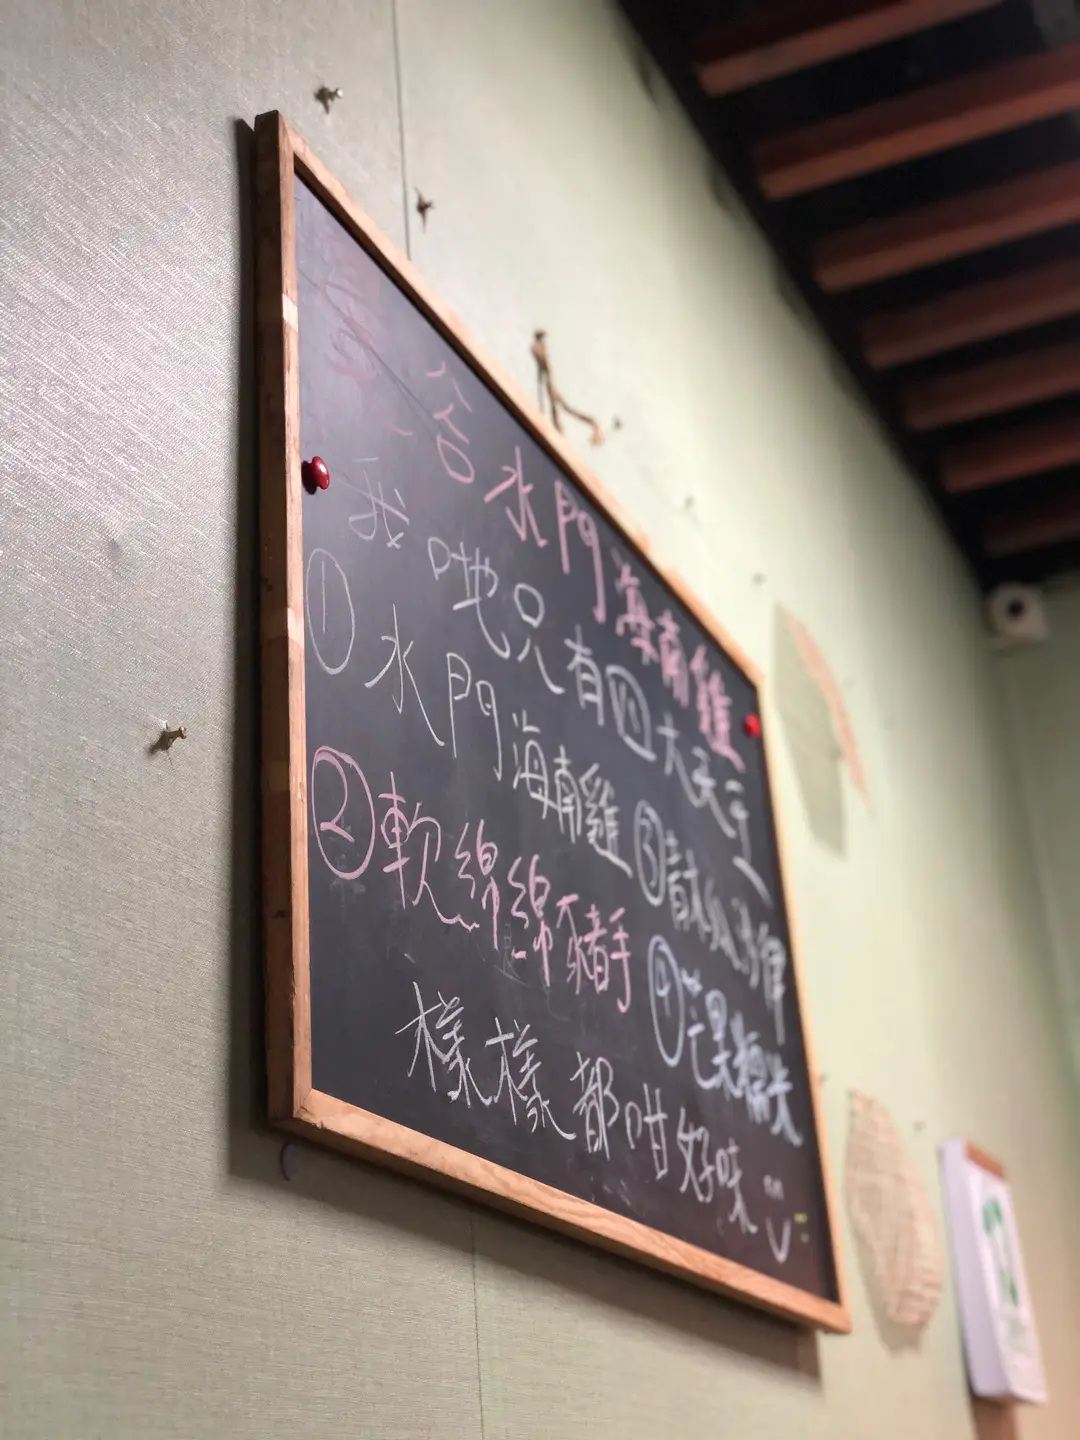 曼谷水門海南雞
我哋只有四大天王
① 水門海南雞
② 軟綿綿豬手
③
④ 芒果糯米
樣樣都咁好味